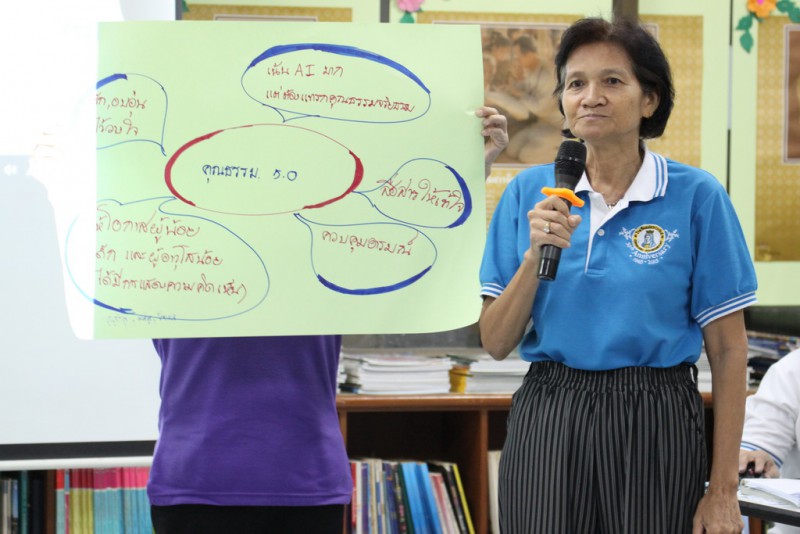 เน้น AI มาก
แต่ต้องแทรกคุณธรรมจริยธรรม
รัก, อบอุ่น
ไว้วางใจ
คุณธรรม. 5.0
สื่อสารให้เข้าใจ
ควบคุมอารมณ์
ให้โอกาสผู้น้อย
เด็ก และผู้อาวุโสน้อย
ได้มีการแสดงความคิดเห็น
Anniversary